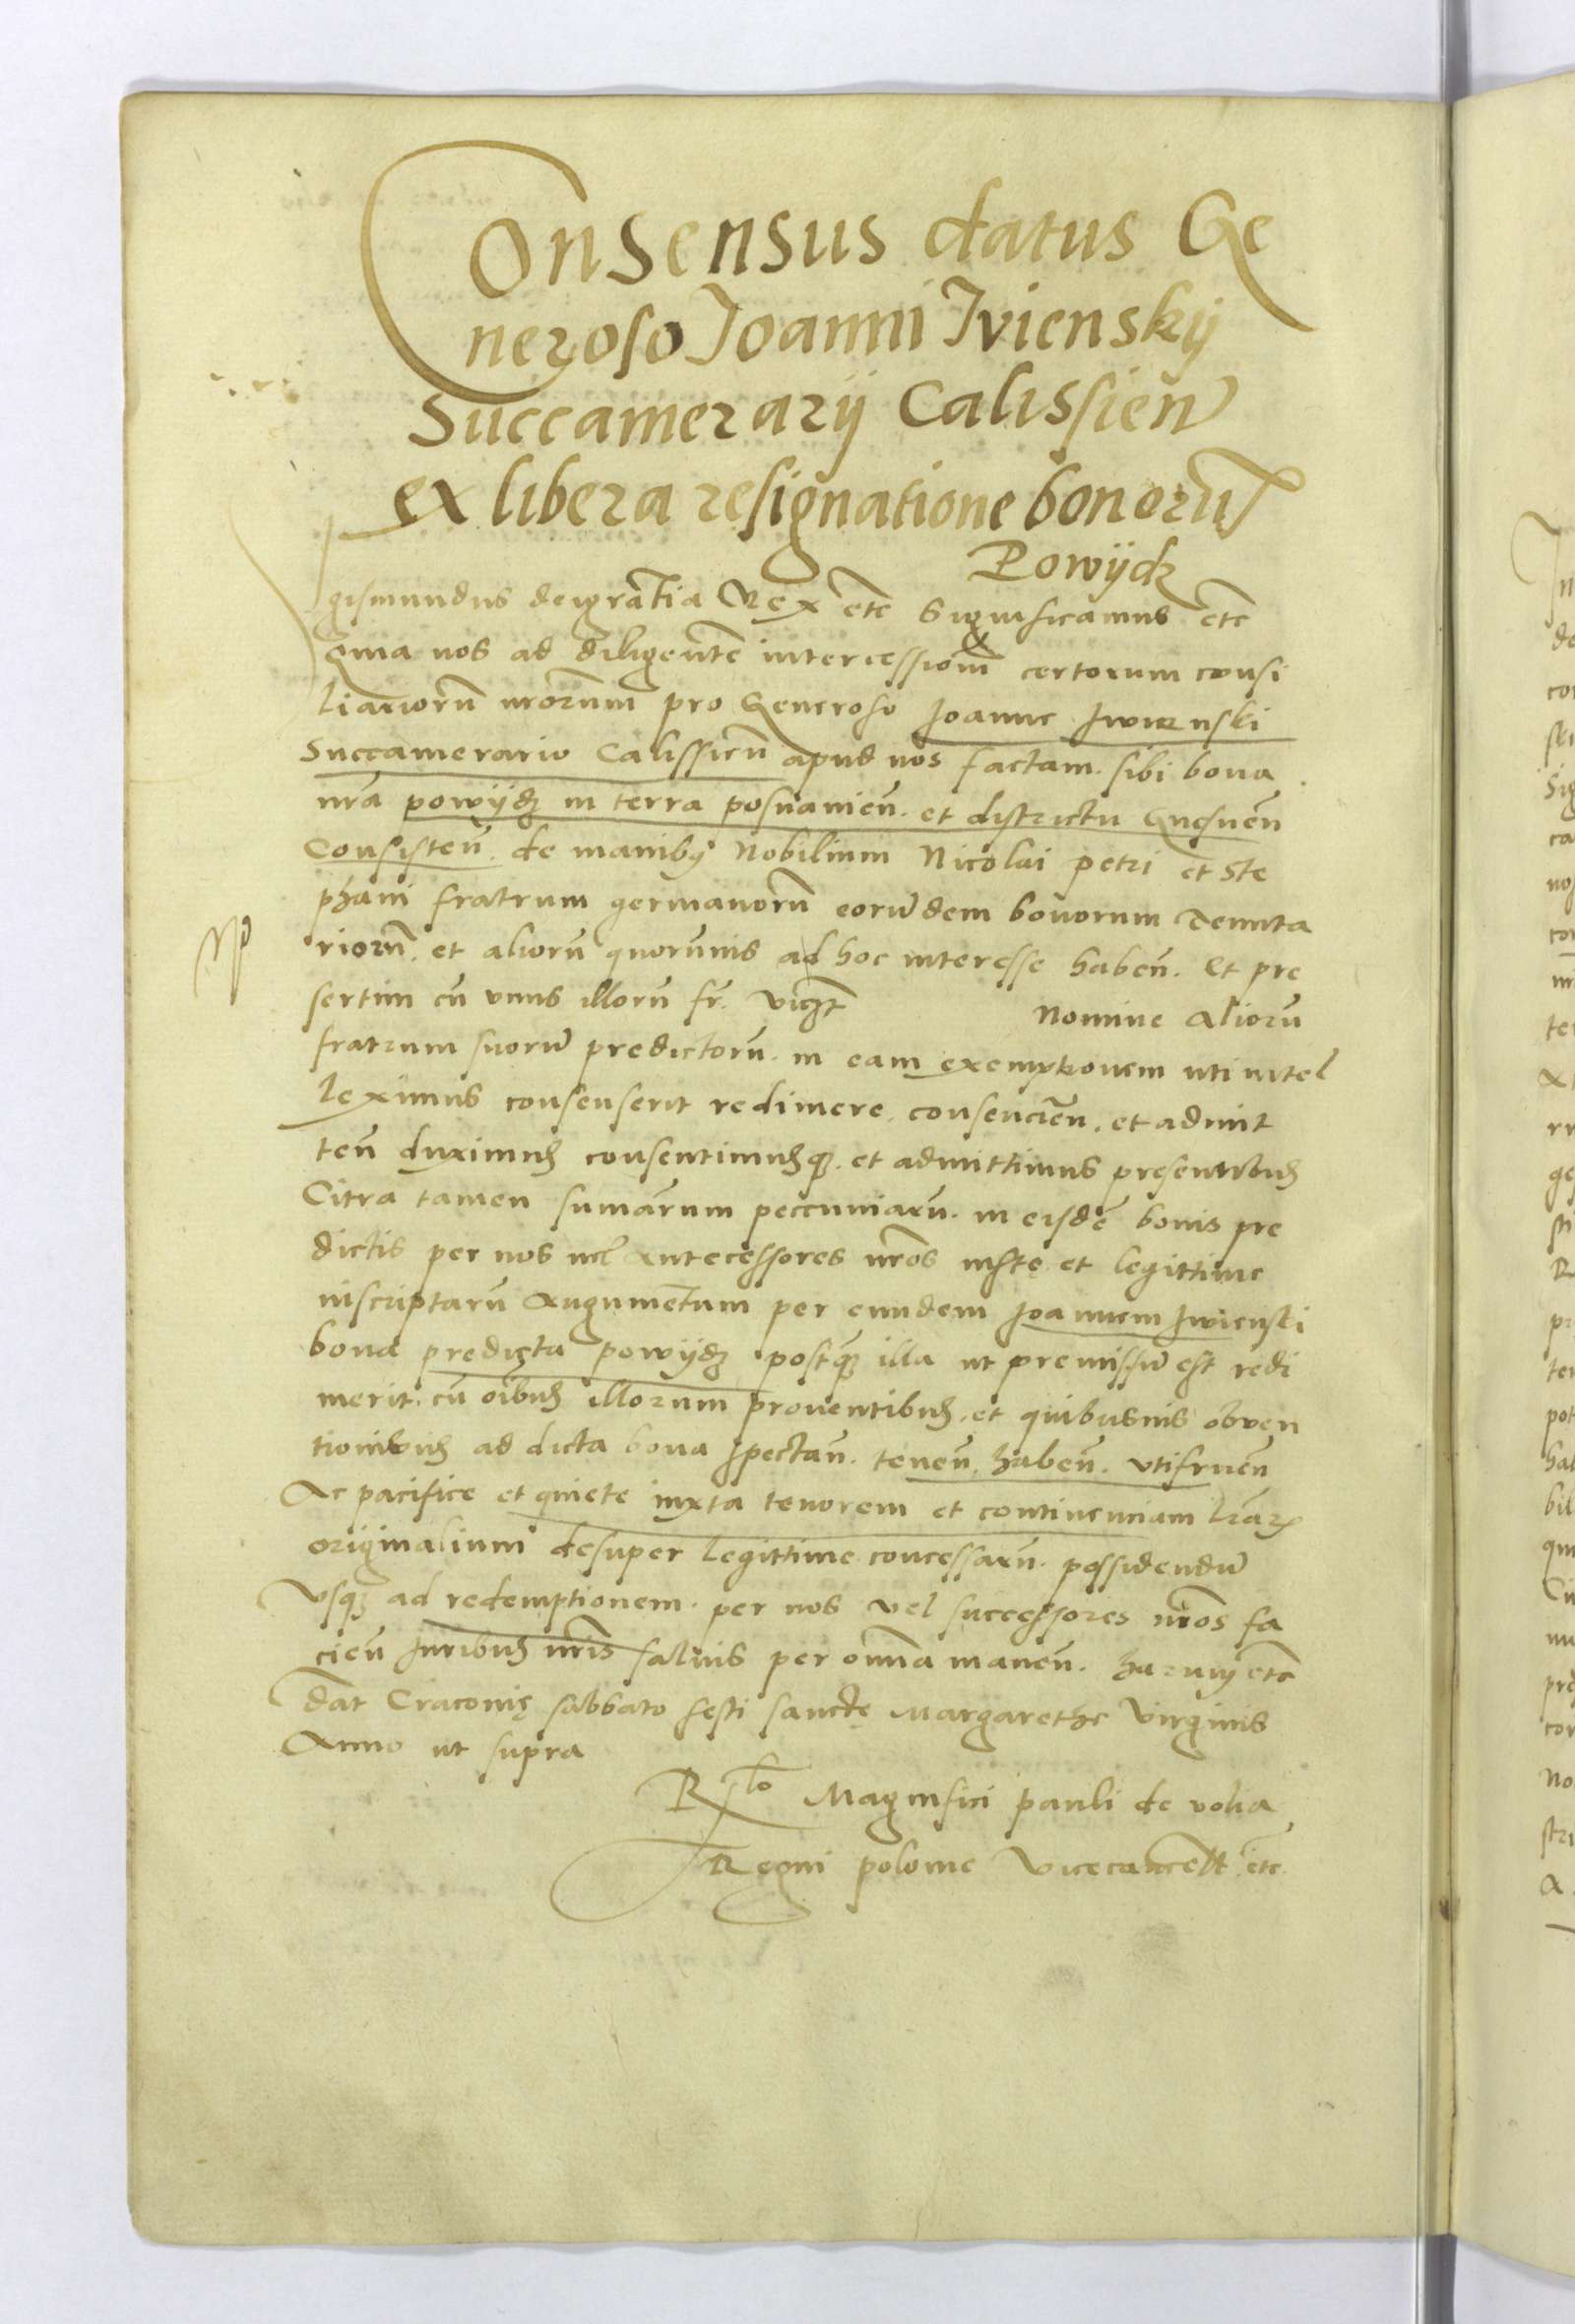 Consensus datus Ge
neroso Joanni Jvienskÿ
Succamerarÿ Calissien̄
ex libera resignatione bonorū
Powÿdz
gismundus dei gratia Rex etc̄ Significamus etc̄
Quia nos ad diligentē intercessionē certorum consi
liariorū nr̄orum pro Generoso Joanne Jwienski
Succamerario Calissien̄ apud nos factam. sibi bona
nr̄a powÿdz in terra posnanien̄. et districtu Gnesnen̄
Consisten̄. de manibꝯ Nobilium Nicolai petri et Ste
phani fratrum germanorū eorūdem bonorum Tenuta
riorū. et aliorū quorūvis ad hoc interesse haben̄. Et pre
sertim cū vnus illorū fr̄. vicꝫt nomine aliorū
fratrum suorū predictorū. in eam exemptionem uti intel
leximus consenserit redimere. consencien̄. et admit
ten̄ duximuꝫ consentimuꝫqꝫ. et admittimus presentibuꝫ
Citra tamen sum̄arum peccuniarū. in eisdē bonis pre
dictis per nos vel antecessores nr̄os iuste et legittime
inscriptarū Augumentum per eundem Joannem Jwienski
bona predicta powÿdz postqꝫ illa ut premissū est redi
merit. cū oībuꝫ illorum prouentibuꝫ. et quibusuis obuen
tionibuꝫ ad dicta bona spectan̄. tenen̄. haben̄. vtifruen̄
Ac pacifice et quiete iuxta tenorem et continenciam lr̄aꝝ
originalium desuper legittime concessarū. possidendū
vsqꝫ ad redemptionem. per nos vel successores nr̄os fa
cien̄ Juribuꝫ nr̄is saluis per omnia manen̄. harum etc̄
Dat̄ Cracouię sabbato festi sanctę Margarethe virginis
Anno ut supra
Rlo Magnifici pauli de volia
Regni polonie vicecancell̄ etc̄